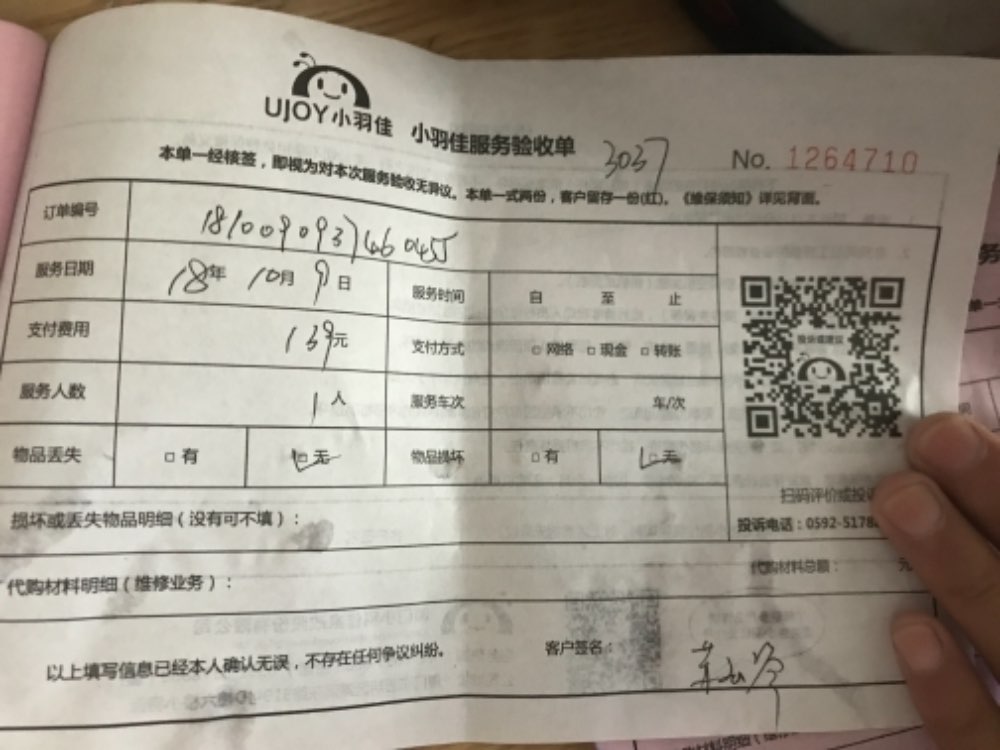 UJOY小羽佳 小羽佳服务验收单 3037 No. 1264710
本单一经核签，即视为对本次服务验收无异议。本单一式两份，客户留存一份(红)。《维保须知》详见背面。
订单编号 1810090937460455
服务日期 18年 10月 9日 服务时间 自 至 止
支付费用 139元 支付方式 □ 网络 □ 现金 □ 转账
服务人数 1人 服务车次 车/次
物品丢失 □ 有 □ 无 物品损坏 □ 有 □ 无
扫码评价或投诉
损坏或丢失物品明细（没有可不填）：
投诉电话：0592-5178
代购材料明细（维修业务）： 代购材料总额： 元
以上填写信息已经本人确认无误，不存在任何争议纠纷。 客户签名：